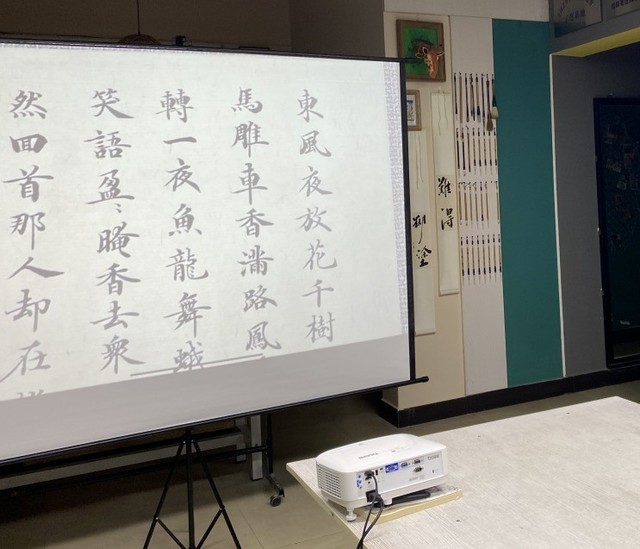 東風夜放花千樹
馬雕車香滿路鳳
轉一夜魚龍舞蛾
笑語盈〻晻香去衆
然回首那人却在
難得
糊塗